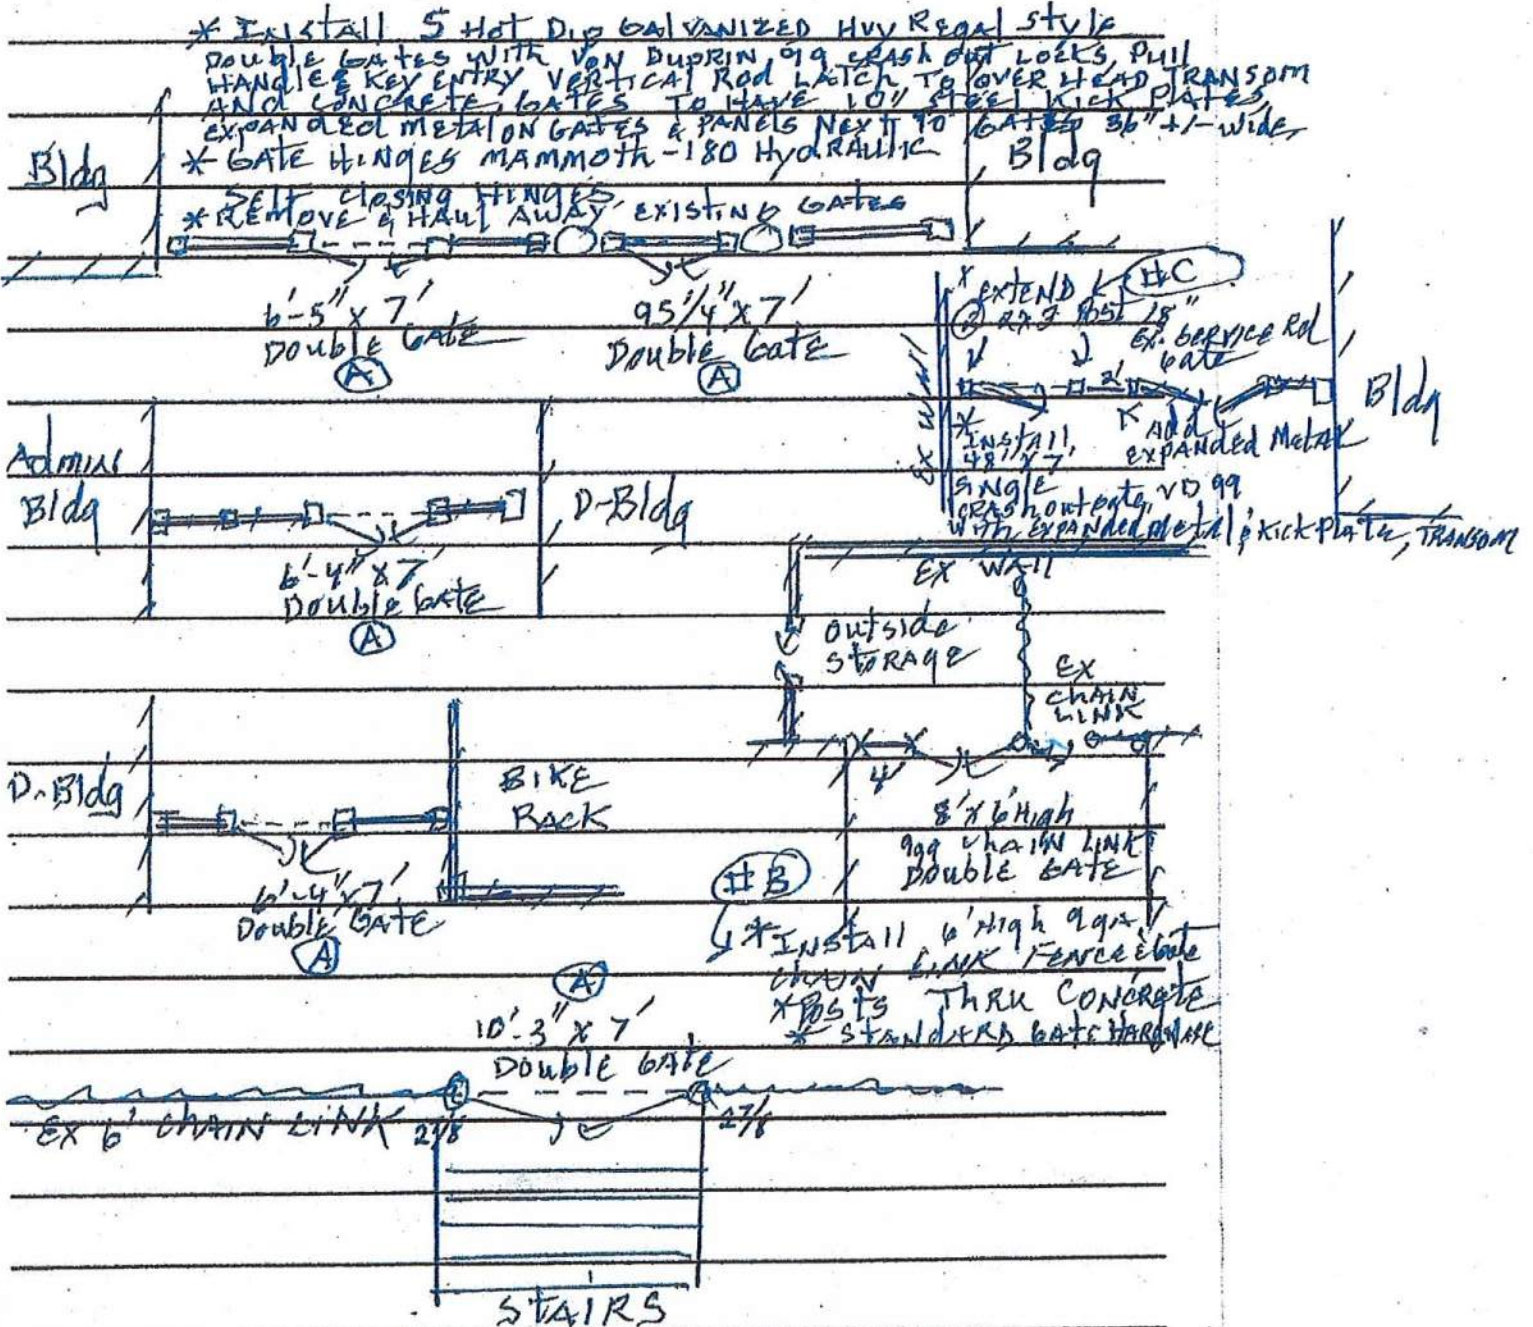 * Install 5 Hot Dip Galvanized Hvy Regal Style
Double Gates with Von Duprin 99 crash out Locks, Pull
Handle & Key Entry Vertical Rod Latch To over Head Transom
And Concrete, Gates To Have 10" Steel Kick Plates,
Expanded Metal on Gates & Panels Next To Gates 36" +/- wide,
* Gate Hinges Mammoth-180 Hydraulic
Self closing Hinges
* Remove & Haul Away Existing Gates
Bldg
Bldg
6'-5" x 7'
Double Gate
A
95 1/4" x 7'
Double Gate
A
#C
* Extend
② 2x2 Post 18"
Ex. Service Rd
Gate
2'
Ex Wall
Bldg
* Install
48" x 7'
Single
Crash out gate, VD 99
with expanded metal & Kick Plate, Transom
Add
Expanded Metal
Admin
Bldg
D-Bldg
6'-4" x 7'
Double Gate
A
Ex Wall
Outside
Storage
Ex
Chain
Link
4'
8' x 6' High
9ga Chain Link
Double Gate
D-Bldg
Bike
Rack
6'-4" x 7'
Double Gate
A
#B
* Install 6' High 9ga
Chain Link Fence & Gate
* Posts Thru Concrete
* Standard Gate Hardware
A
10'-3" x 7'
Double Gate
Ex 6' Chain Link
2 7/8
2 7/8
Stairs